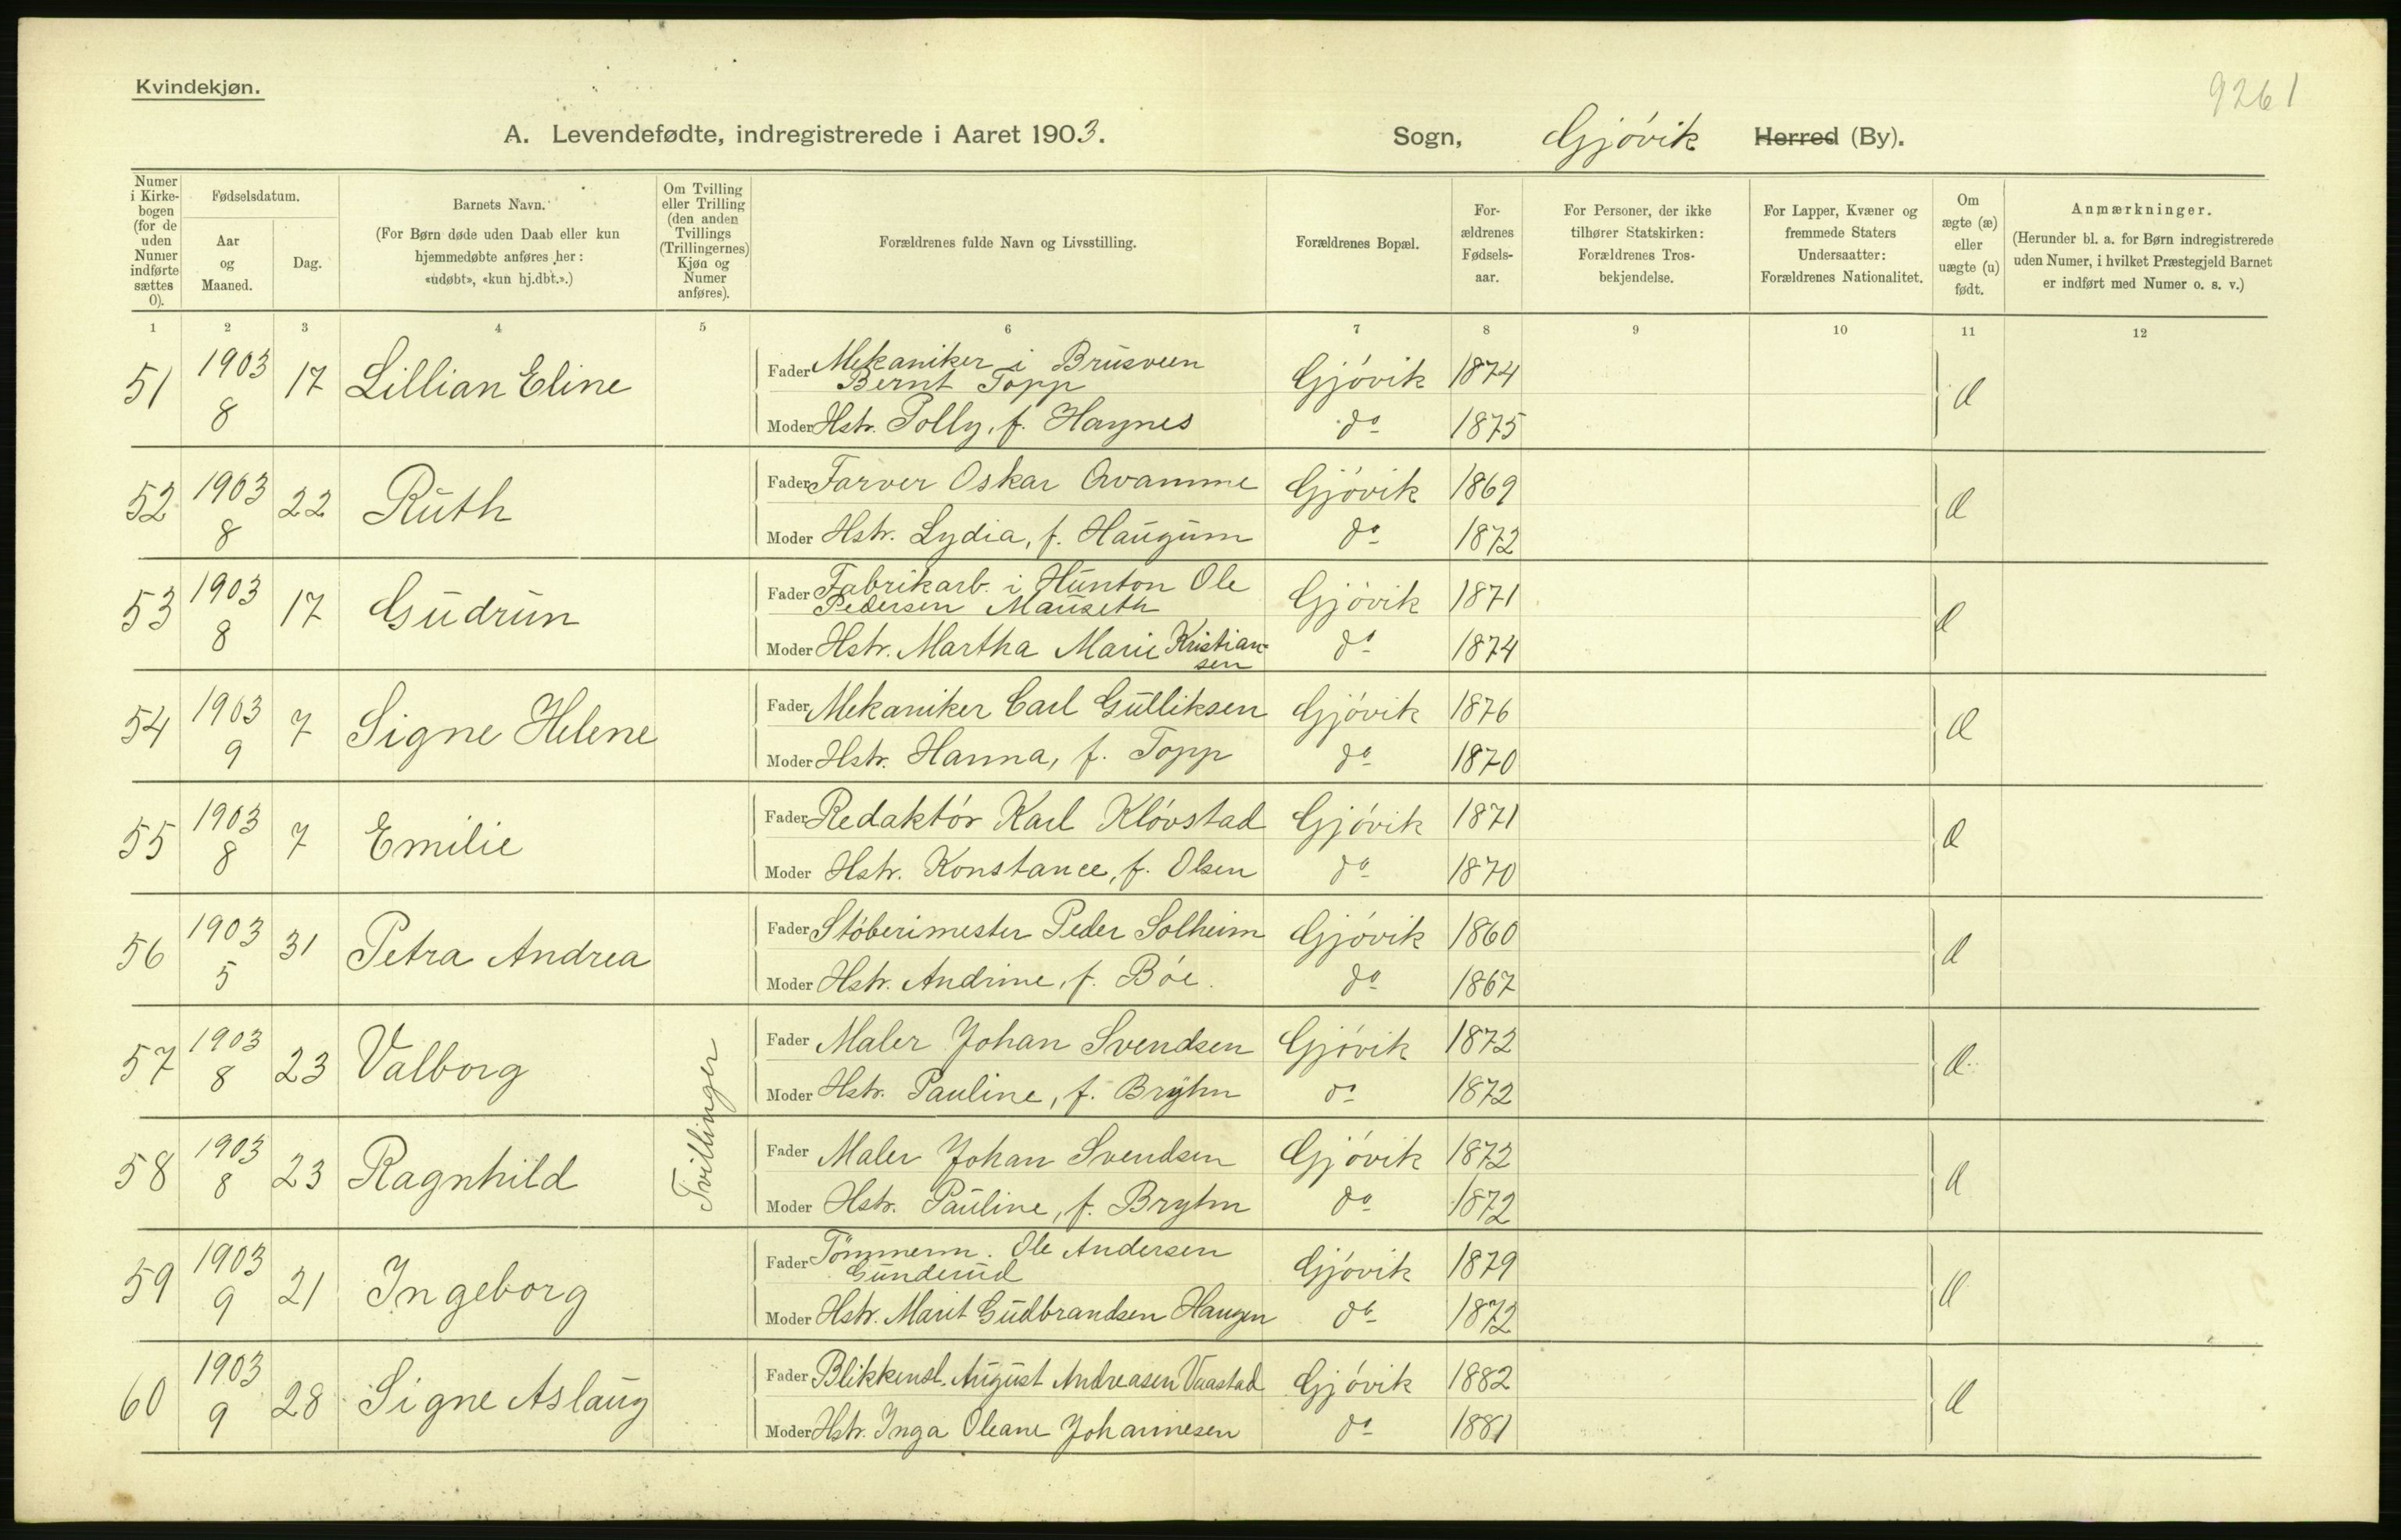 Kvindekjøn.
9261
A. Levendefødte, indregistrerede i Aaret 1903. Sogn, Gjøvik Herred (By).
Numer i Kirkebogen (for de uden Numer indførte sættes 0).
Fødselsdatum.
Aar og Maaned.
Dag.
Barnets Navn.
(For Børn døde uden Daab eller kun hjemmedøbte anføres her: «udøbt», «kun hj.dbt.».)
Om Tvilling eller Trilling (den anden Tvillings (Trillingernes) Kjøn og Numer anføres).
Forældrenes fulde Navn og Livsstilling.
Forældrenes Bopæl.
Forældrenes Fødselsaar.
For Personer, der ikke tilhører Statskirken: Forældrenes Trosbekjendelse.
For Lapper, Kvæner og fremmede Staters Undersaatter: Forældrenes Nationalitet.
Om ægte (æ) eller uægte (u) født.
Anmærkninger.
(Herunder bl. a. for Børn indregistrerede uden Numer, i hvilket Præstegjeld Barnet er indført med Numer o. s. v.)
1 2 3 4 5 6 7 8 9 10 11 12
51 1903 8 17 Lillian Eline
Fader Mekaniker i Brusveen Bernt Topp Gjøvik 1874 æ
Moder Hstr. Polly, f. Haynes do 1875
52 1903 8 22 Ruth
Fader Farver Oskar Qvamme Gjøvik 1869 æ
Moder Hstr. Lydia, f. Haugum do 1872
53 1903 8 17 Gudrun
Fader Fabrikarb. i Hunton Ole Pedersen Mauseth Gjøvik 1871 æ
Moder Hstr. Martha Marie Kristiansen do 1874
54 1903 9 7 Signe Helene
Fader Mekaniker Carl Gulliksen Gjøvik 1876 æ
Moder Hstr. Hanna, f. Topp do 1870
55 1903 8 7 Emilie
Fader Redaktør Karl Kløvstad Gjøvik 1871 æ
Moder Hstr. Konstance, f. Olsen do 1870
56 1903 5 31 Petra Andrea
Fader Støberimester Peder Solheim Gjøvik 1860 æ
Moder Hstr. Andrine, f. Bøe. do 1867
57 1903 8 23 Valborg Tvillinger
Fader Maler Johan Svendsen Gjøvik 1872 æ
Moder Hstr. Pauline, f. Bryhn do 1872
58 1903 8 23 Ragnhild
Fader Maler Johan Svendsen Gjøvik 1872 æ
Moder Hstr. Pauline, f. Bryhn do 1872
59 1903 9 21 Ingeborg
Fader Tömmerm. Ole Andersen Gunderud Gjøvik 1879 æ
Moder Hstr. Marit Gudbrandsen Haugen do 1872
60 1903 9 28 Signe Aslaug
Fader Blikkensl. August Andreasen Vaastad Gjøvik 1882 æ
Moder Hstr. Inga Oleane Johannesen do 1881